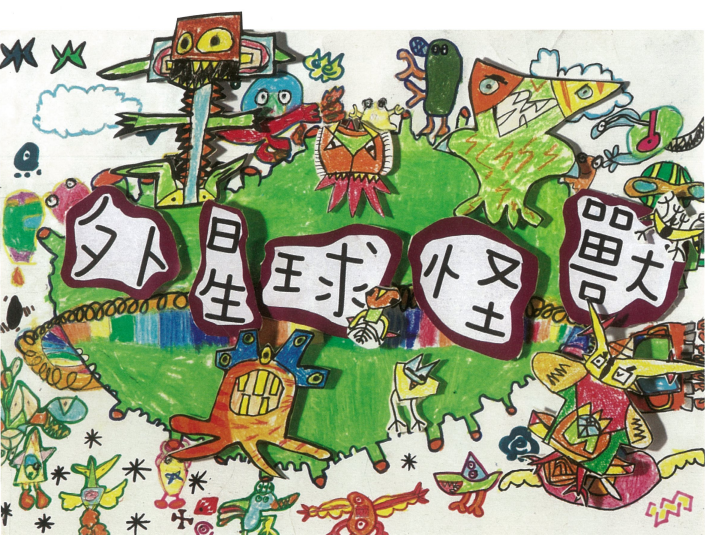 外星球怪獸